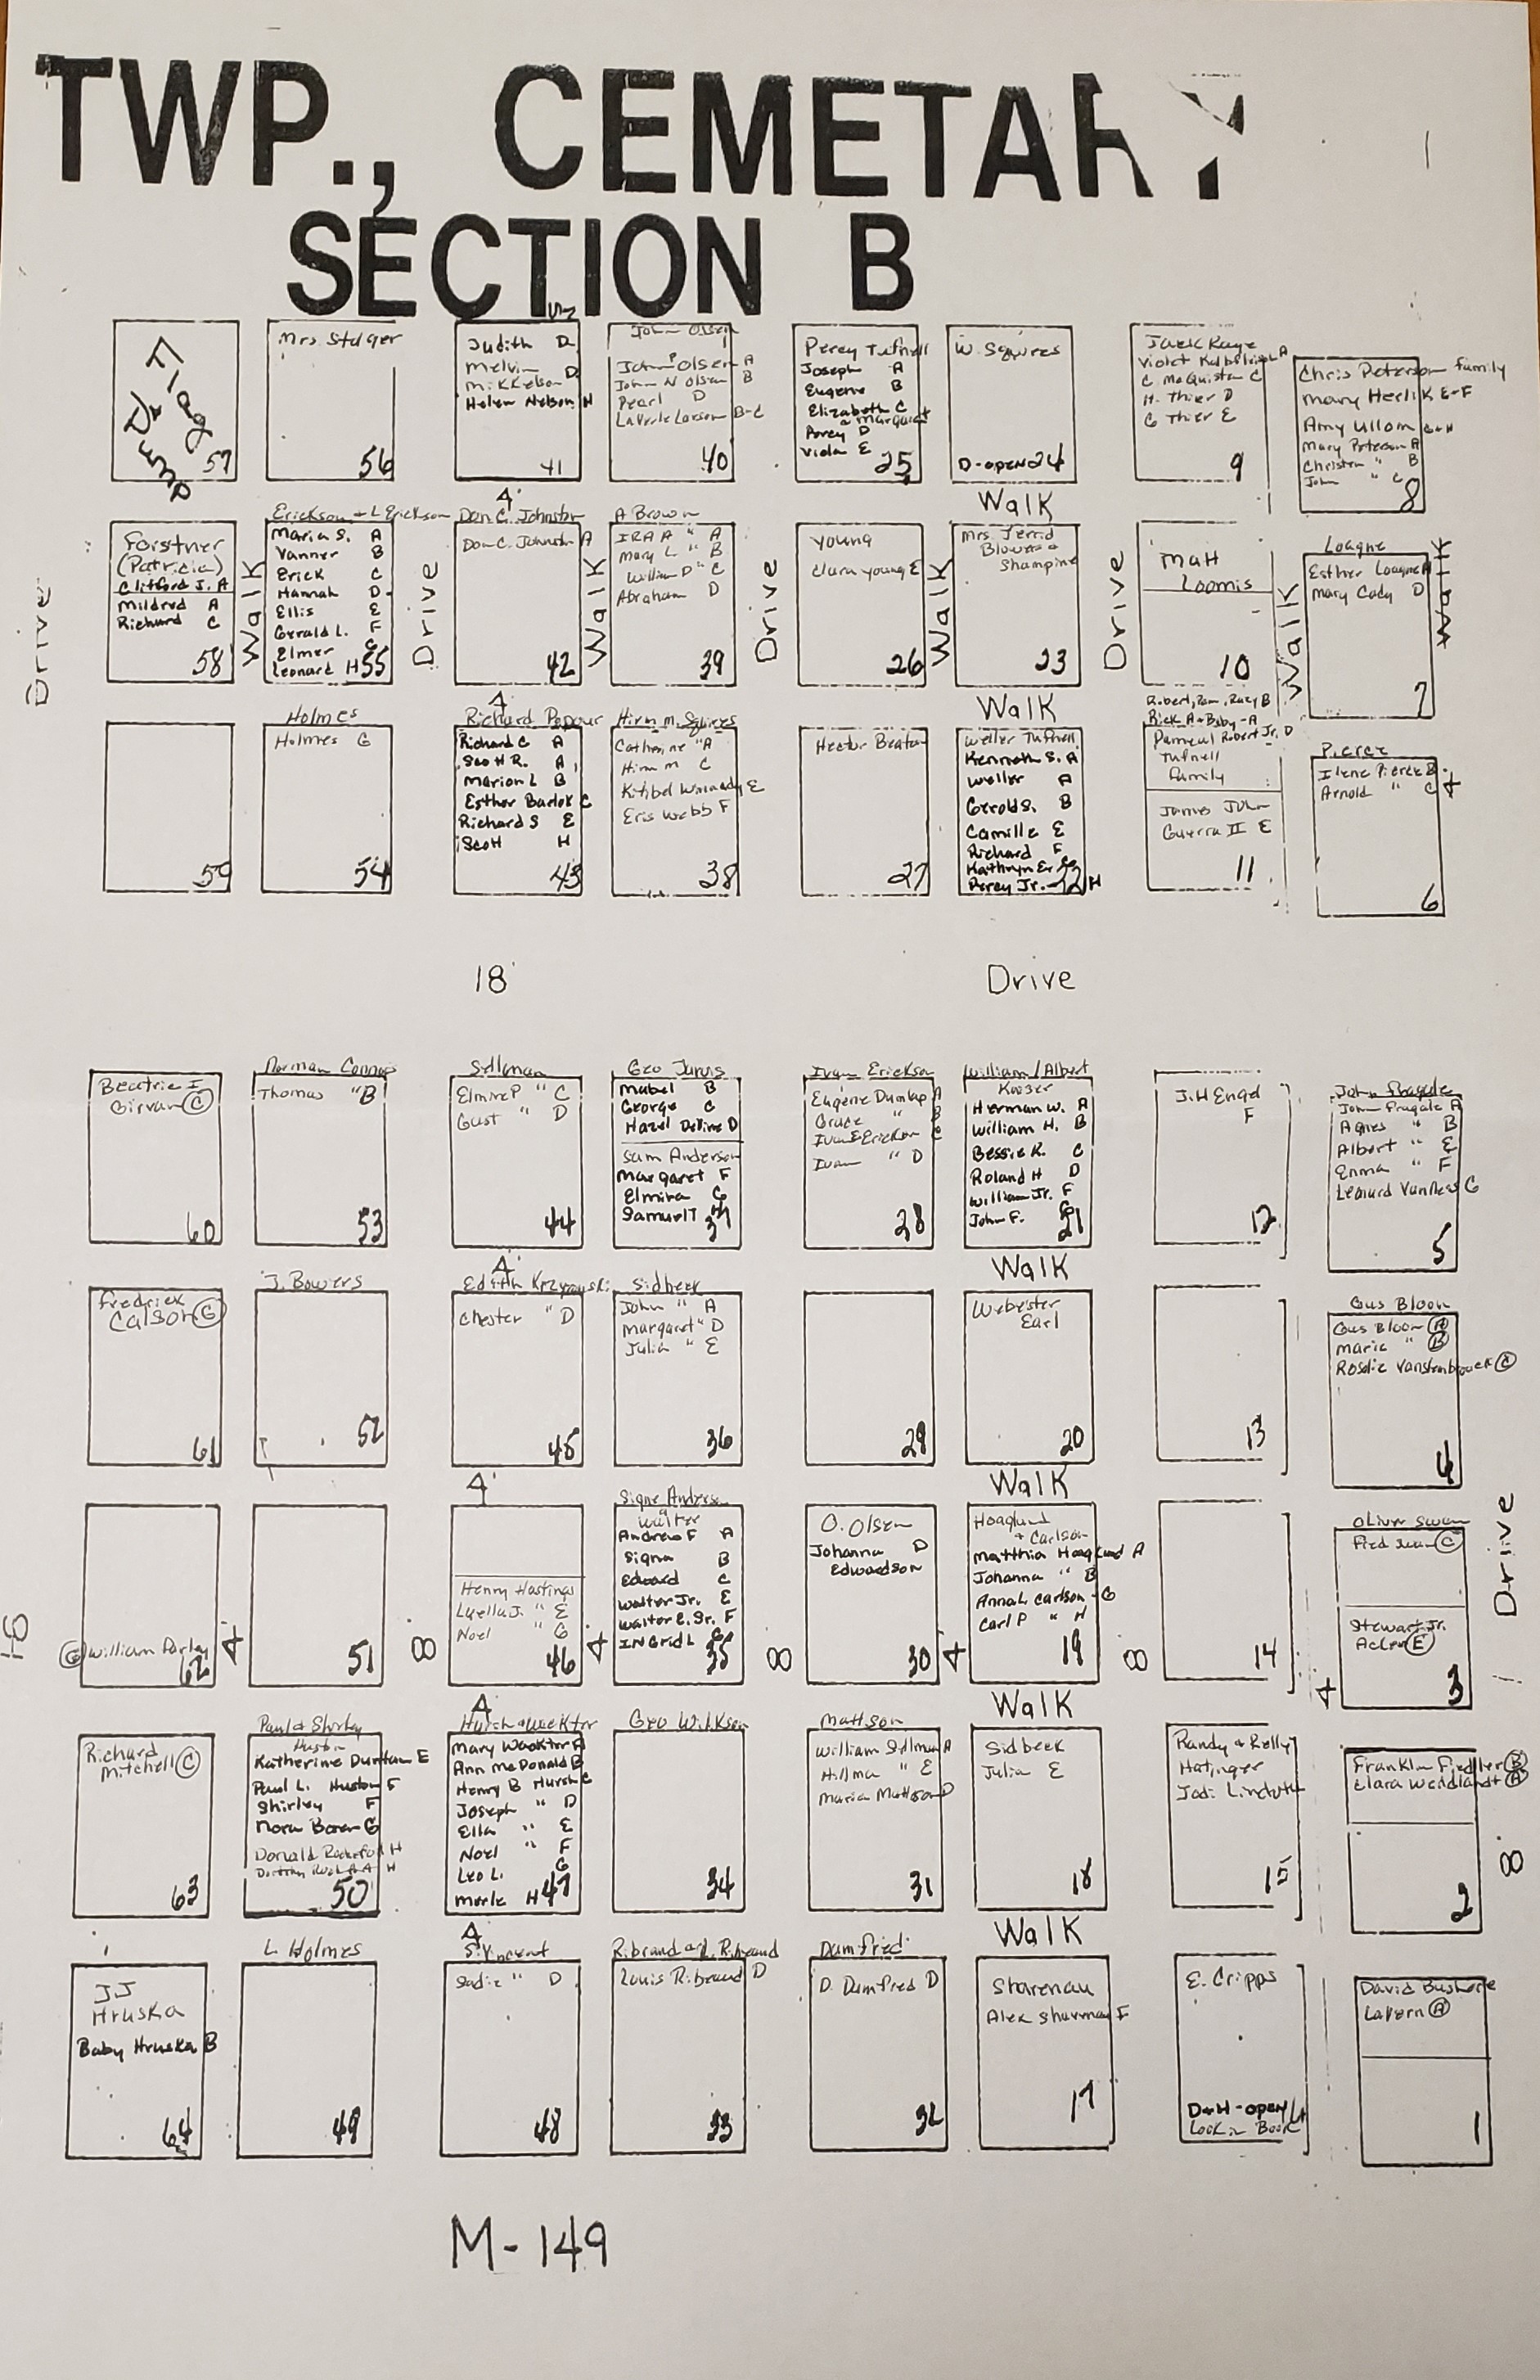 TWP., CEMETARY
SECTION B
Flag
57
Mrs. Stelger
56
Judith D
Melvin
Mikkelson D
Helen Nelson H
41
John Olsen
John P Olsen A
John N Olsen B
Pearl D
LaVerle Larson B-C
40
Percy Tufnell
Joseph A
Eugene B
Elizabeth C
& Marquist
Percy D
Viola E
25
W. Squires
D-OPEN 24
Jack Raye
Violet A
C. McQuistan C
H. Thier D
G Thier E
9
Chris Peterson family
Mary Herlik E-F
Amy Ullom G+H
Mary Peterson A
Christen " B
John " C
8
Drive
Forstner
(Patricia)
Clifford J. A
Mildred A
Richard C
58
Walk
Erickson + L Erickson
Maria S. A
Vanner B
Erick C
Hannah D
Ellis E
Gerald L. F
Elmer G
Leonard H 55
Drive
4'
Don C. Johnston
Don C. Johnston A
42
Walk
A Brown
IRA A " A
Mary L " B
William D " C
Abraham D
39
Drive
Young
Clara Young E
26
Walk
Walk
Mrs. Jerrid
Blowers &
Shampine
23
Drive
Matt
Loomis
10
Walk
Loague
Esther Loague A
Mary Cady D
7
Walk
59
Holmes
Holmes G
54
4'
Richard Papour
Richard C A
Scott R. A
Marion L B
Esther Bartok C
Richard S E
Scott H
43
Hirm M. Squires
Catherine " A
Hirm M C
Kitibel E
Eris Webb F
38
Hector Beaton
27
Walk
Weller Tufnell
Kenneth S. A
Weller A
Gerold S. B
Camille E
Richard F
Kathryn E. G
Percy Jr. H
Robert, Pam, B
Rick A + Baby - A
Robert Jr. D
Tufnell
family
James John
Guerra II E
11
Pierce
Ilene Pierce B
Arnold " C
4
6
18'
Drive
Beatrice I
Girvan C
60
Norman Connor
Thomas " B
53
Sellman
Elmire P " C
Gust " D
44
Geo Jarvis
Mabel B
George C
Hazel Deline D
Sam Anderson
Margaret F
Elmira G
Samuel T H
37
Ivan Erickson
Eugene Dunlap A
Grace " B
Ivan E Erickson C
Ivan " D
28
William/Albert
Kaiser
Herman W. A
William H. B
Bessie K. C
Roland H D
William Jr. F
John F. G
21
J.H Engel
F
12
John Pragale
John Pragale A
Agnes " B
Albert " E
Emma " F
Leonard VanNess G
5
Fredrick
Calson G
61
J. Bowers
52
4'
Edith
Chester " D
45
Sidbeek
John " A
Margaret " D
Julia " E
36
29
Walk
Webester
Earl
20
13
Gus Bloom
Gus Bloom A
Marie " B
Rosalie C
4
16
G William Farley
62
4
51
8
4'
Henry Hastings
Luella J. " E
Noel " G
46
4
Signe Anderson
Walter
Andrew F A
Signa B
Edward C
Walter Jr. E
Walter E. Sr. F
INGrid L G
35
8
O. Olsen
Johanna D
Edwardson
30
4
Walk
Hoaglund
+ Carlson
Matthia Hoaglund A
Johanna " B
Anna L. Carlson - G
Carl P " H
19
8
14
4
Oliver Swan
Fred Swan C
Stewart Jr.
Acker E
3
Drive
Richard
Mitchell C
63
Paul & Shirley
Huston
Katherine Dunham E
Paul L. Huston F
Shirley F
Nora Boren G
Donald H
H
50
4
Hursh & Wackter
Mary Wackter A
Ann McDonald B
Henry B Hursh C
Joseph " D
Ella " E
Noel " F
Leo L. G
Merle H 47
Geo Wilkson
34
Mattson
William Sellman A
Hilma " E
Maria Mattson D
31
Walk
Sidbeek
Julia E
18
Randy & Kelly
Hatinger
Jodi
15
Franklin Fiedler B
Clara Wendlandt A
2
8
JJ
Hruska
Baby Hruska B
64
L. Holmes
49
4
S. Vincent
Sadie " D
48
Ribrand and L. Ribrand
Louis Ribrand D
33
Damfried
D. Damfried D
32
Walk
Sharenau
Alex F
17
E. Cripps
D+H-OPEN
Look in Book
David Bushore
Lavern A
1
M-149